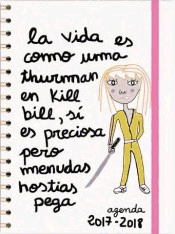 la vida es
como uma
thurman
en kill
bill, sí
es preciosa
pero
menudas
hostias
pega
agenda
2017-2018